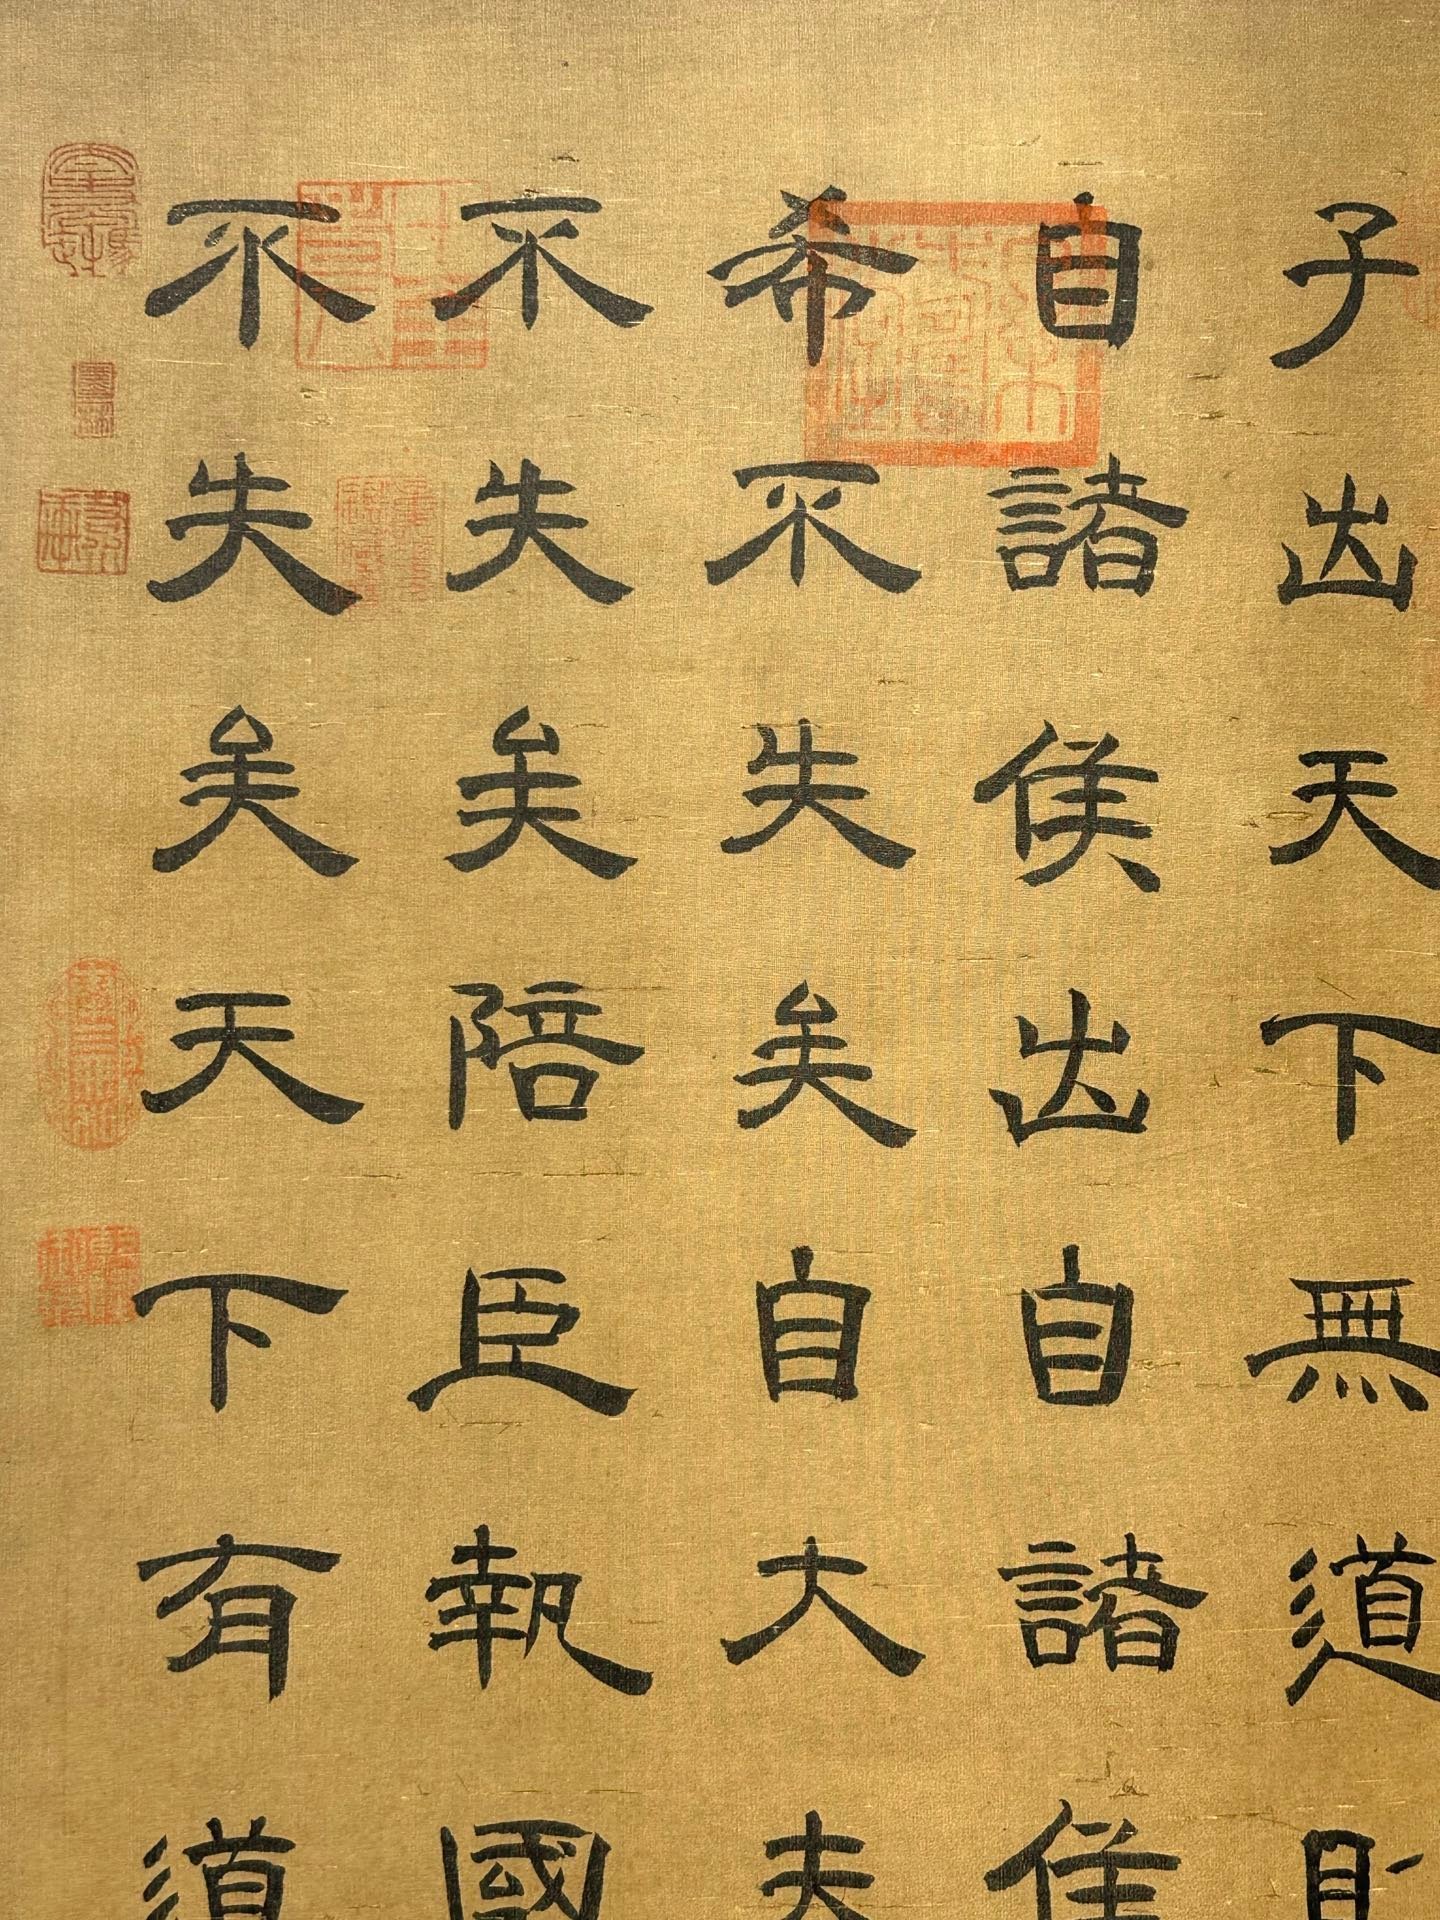 子出天下無道則
自諸侯出自諸侯
希不失矣自大夫
不失矣陪臣執國
不失矣天下有道